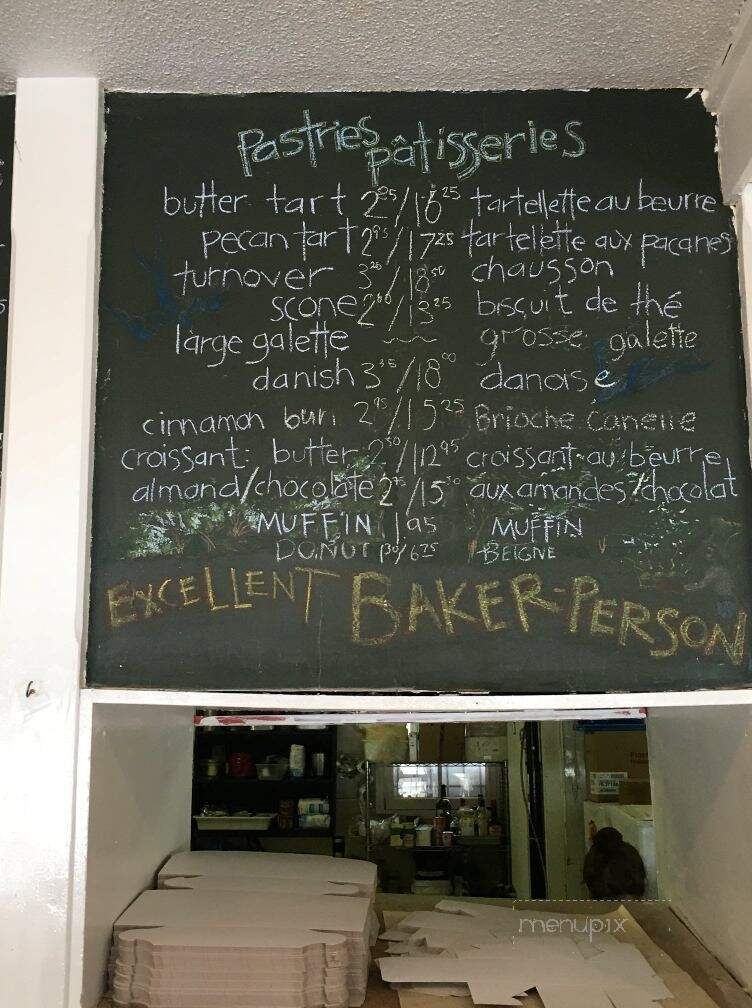 Pastries pâtisseries
butter tart 2⁹⁵/16²⁵ tartellette au beurre
pecan tart 2⁹⁵/17²⁵ tartellette aux pacanes
turnover /18⁵⁰ chausson
scone /13²⁵ biscuit de thé
large galette ~~ grosse galette
danish /18⁰⁰ danoise
cinnamon bun 2⁹⁵/15²⁵ Brioche Canelle
croissant: butter 2⁵⁰/12⁹⁵ croissant au beurre
almond/chocolate /15 aux amandes/chocolat
MUFFIN 1.95 MUFFIN
DONUT 1³⁰/6²⁵ BEIGNE
EXCELLENT BAKER-PERSON
menupix